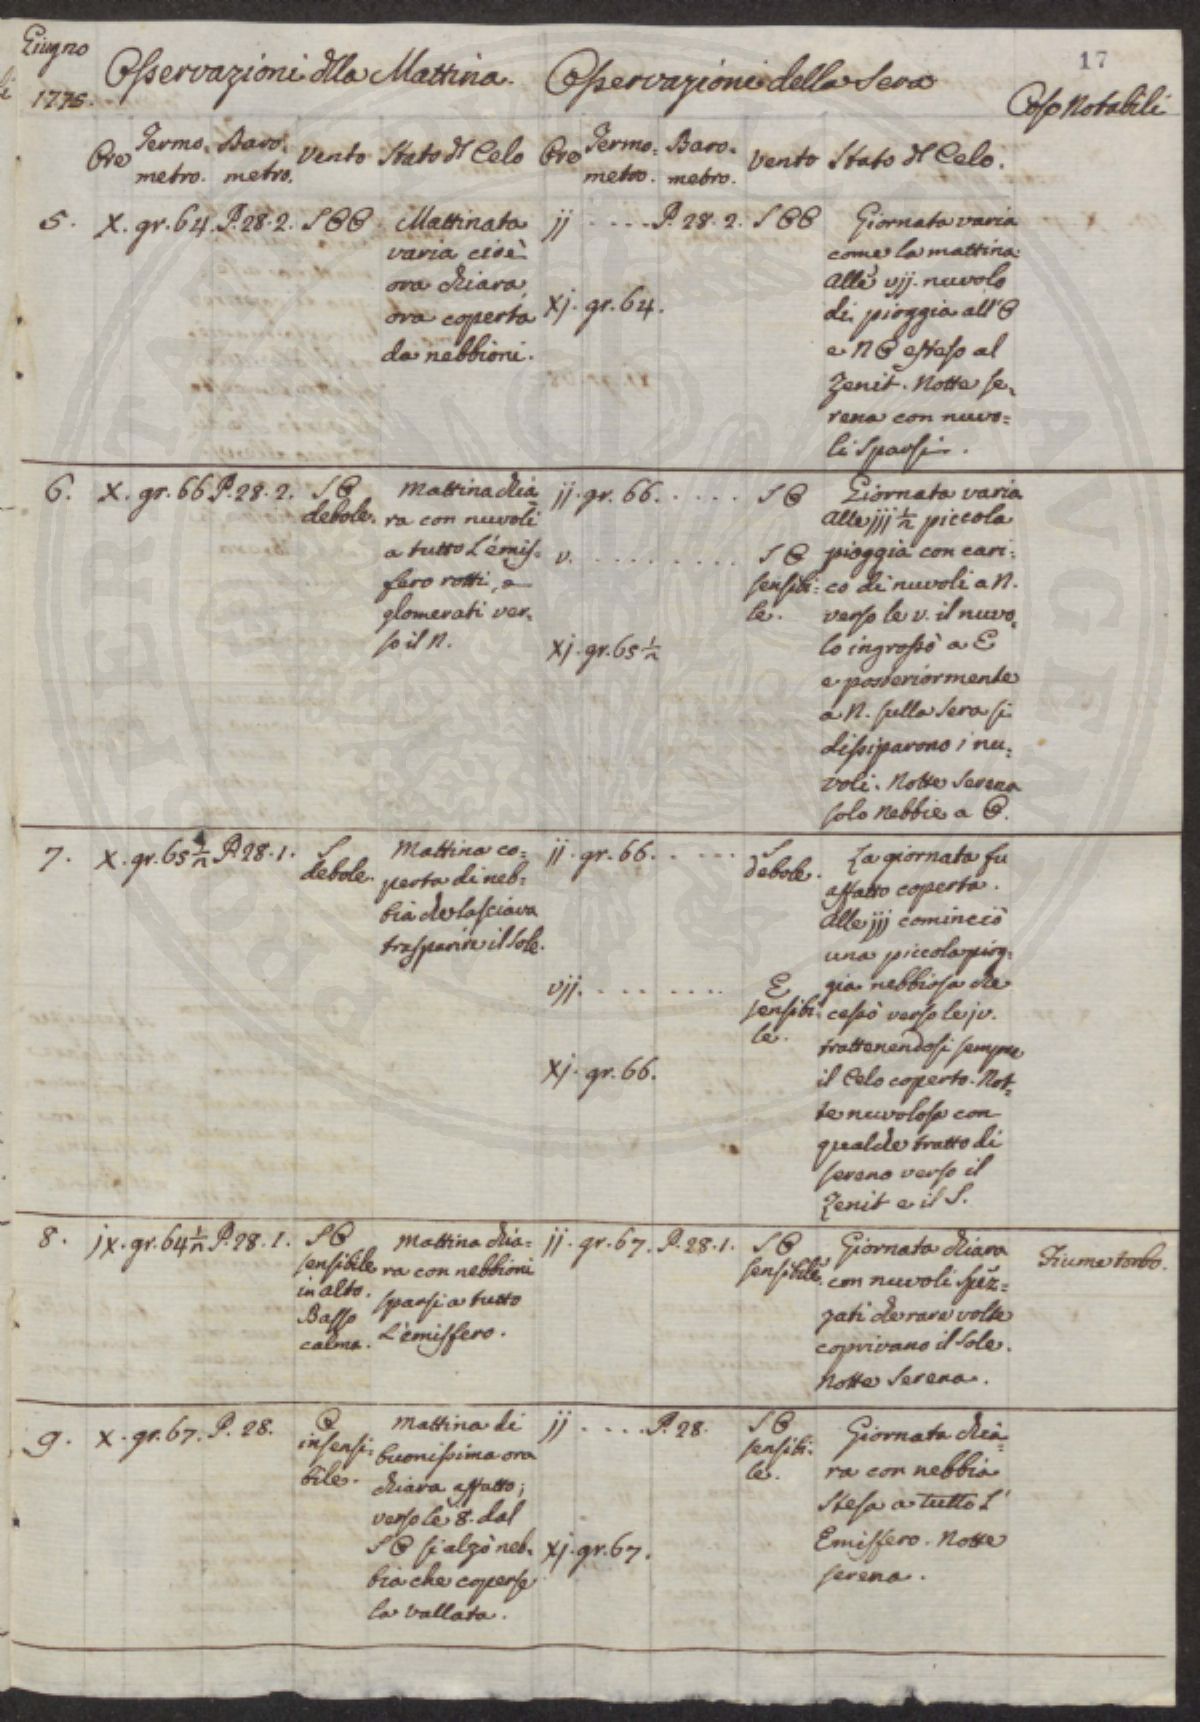 Giugno
1775.
17
Osservazioni dlla Mattina.
Osservazioni della Sera
Cose Notabili
Ore Termo: metro. Baro: metro. Vento Stato dl Celo
Ore Termo: metro. Baro: metro. Vento Stato dl Celo.
5. X. gr. 64. P. 28. 2. S O O
Mattinata
varia cioè
ora chiara
ora coperta
da nebbioni.
jj . . . . P. 28. 2. S O O
xj. gr. 64.
Giornata varia
come la mattina
Alle vjj. nuvolo
di pioggia all'O
e N O esteso al
Zenit. Notte se:
rena con nuvo:
li sparsi.
6. X. gr. 66 P. 28. 2. S O
debole.
Mattina chia
ra con nuvoli
a tutto L'emis:
fero rotti, a
glomerati ver:
so il N.
jj. gr. 66. . . . . S O
v. . . . . . . . . S O
sensibi:
le.
xj. gr. 65 1/2
Giornata varia
Alle jjj 1/2 piccola
pioggia con cari:
co di nuvoli a N.
verso le v. il nuvo:
lo ingrossò a E
e posteriormente
a N. sulla sera si
dissiparono i nu:
voli. Notte serena
solo nebbie a O.
7. X. gr. 65 1/2 P. 28. 1. S
debole.
Mattina co:
perta di neb:
bia che lasciava
trasparire il sole.
jj. gr. 66. . . . . S
debole.
vjj. . . . . . . . E
sensibi:
le.
xj. gr. 66.
La giornata fu
affatto coperta.
Alle jjj cominciò
una piccola piog:
gia nebbiosa che
cessò verso le jv.
trattenendosi sempre
il Celo coperto. Not:
te nuvolosa con
qualche tratto di
sereno verso il
Zenit e il S.
8. jx. gr. 64 1/2 P. 28. 1. S O
sensibile
in alto.
Basso
calma.
Mattina chia:
ra con nebbioni
sparsi a tutto
L'emisfero.
jj. gr. 67. P. 28. 1. S O
sensibile.
Giornata chiara
con nuvoli spez:
zati che rare volte
coprivano il sole.
Notte Serena.
Fiume torbo.
9. X. gr. 67. P. 28. O
insensi:
bile.
Mattina di
buonissima ora
chiara affatto;
verso le 8. dal
S O si alzò neb:
bia che coperse
la vallata.
jj . . . . P. 28. S O
sensibi:
le.
xj. gr. 67.
Giornata chia:
ra con nebbia
stesa a tutto L'
Emisfero. Notte
serena.